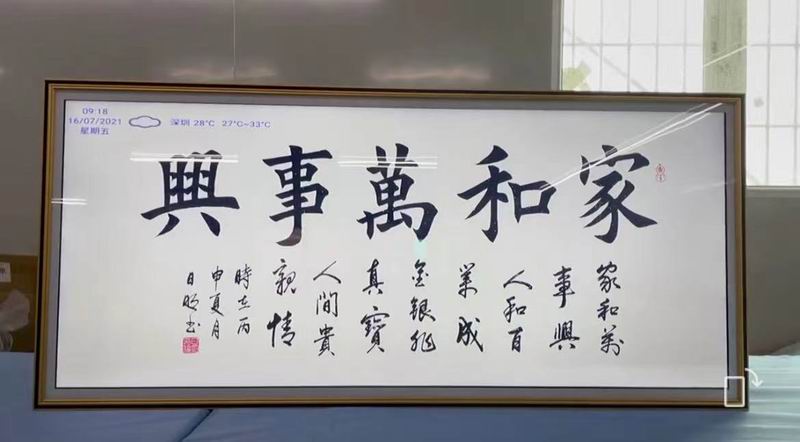 09:18
16/07/2021
星期五
深圳 28°C 27°C~33°C
家和萬事興
家和萬
事興
人和百
業成
金銀非
真寶
人間貴
親情
時在丙
申夏月